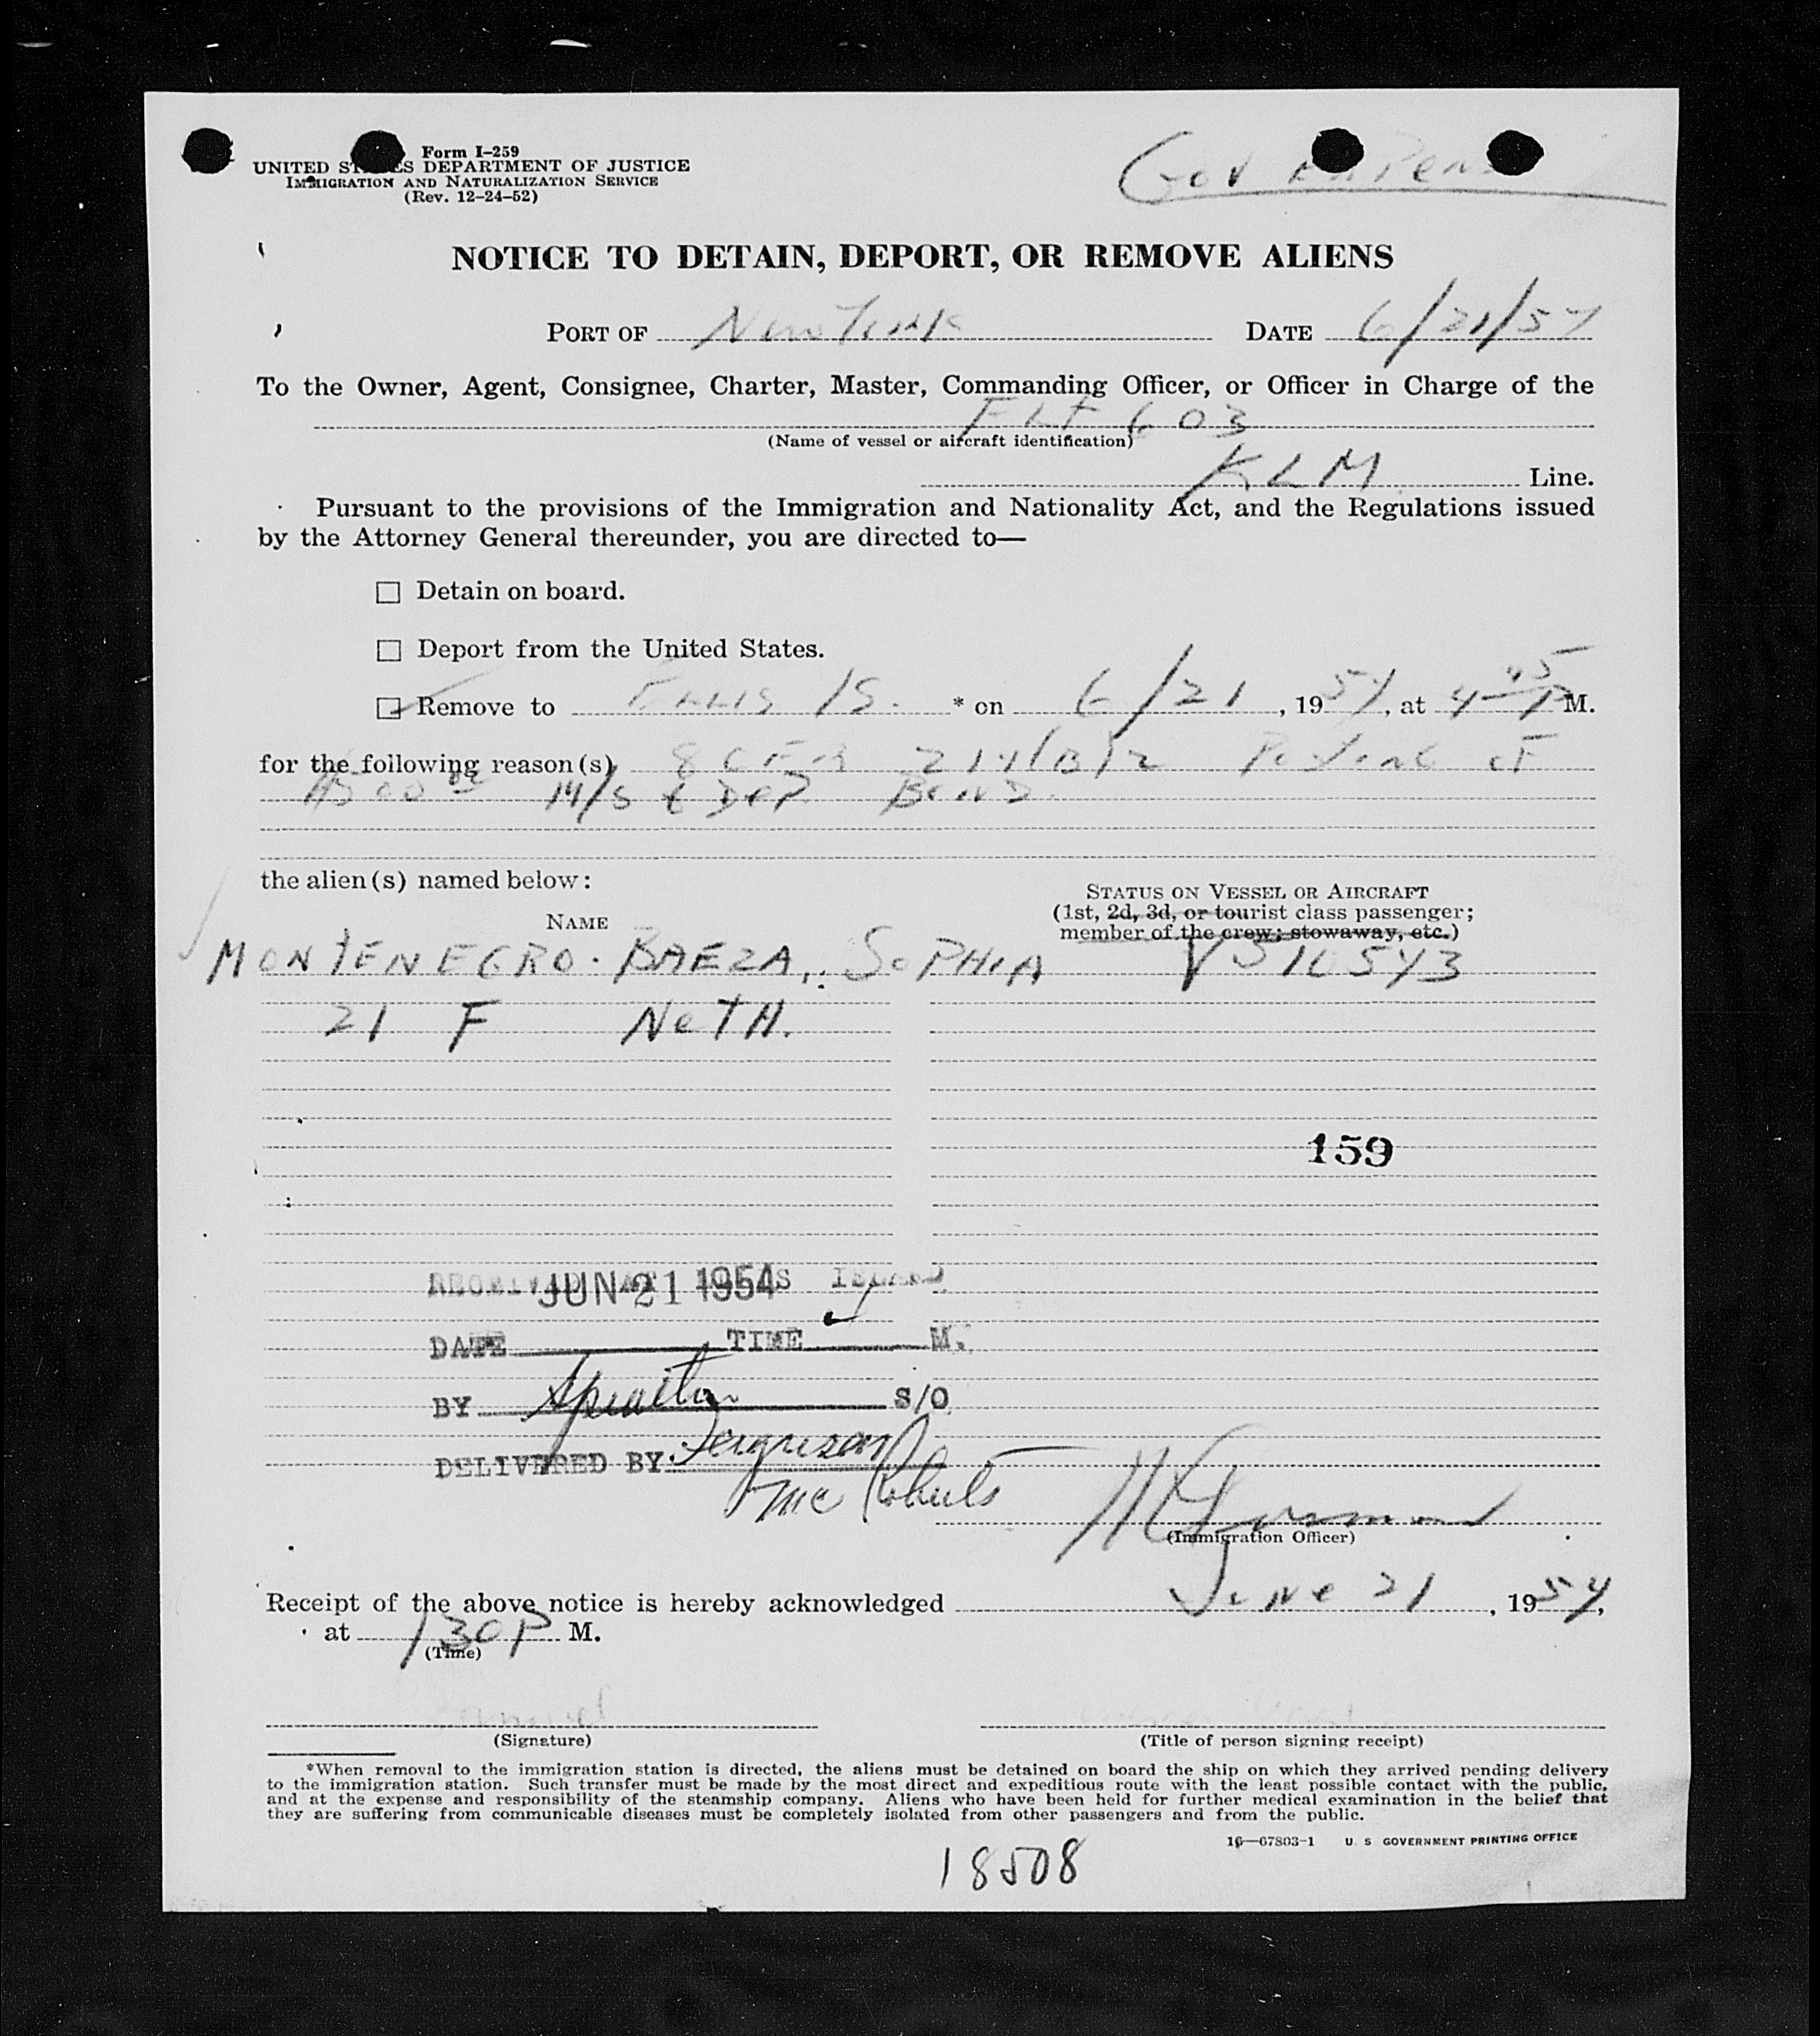 Form I-259
UNITED STATES DEPARTMENT OF JUSTICE
IMMIGRATION AND NATURALIZATION SERVICE
(Rev. 12-24-52)
Gov Expense
NOTICE TO DETAIN, DEPORT, OR REMOVE ALIENS
PORT OF New York DATE 6/21/54
To the Owner, Agent, Consignee, Charter, Master, Commanding Officer, or Officer in Charge of the
FLT 603
(Name of vessel or aircraft identification)
KLM Line.
Pursuant to the provisions of the Immigration and Nationality Act, and the Regulations issued
by the Attorney General thereunder, you are directed to—
Detain on board.
Deport from the United States.
Remove to Ellis Is. * on 6/21, 1954, at 4 45 P M.
for the following reason(s) 8 CFR Posting of
$500 00 M/S & Dep. Bond.
the alien(s) named below:
NAME
STATUS ON VESSEL OR AIRCRAFT
(1st, 2d, 3d, or tourist class passenger;
member of the crew; stowaway, etc.)
MONTENEGRO-BAEZA, SOPHIA
21 F NeTH.
159
RECEIVED AT ELLIS ISLAND
JUN 21 1954
DATE TIME M.
BY S/O
DELIVERED BY Ferguson
McRoberts
(Immigration Officer)
Receipt of the above notice is hereby acknowledged June 21, 1954,
at 130 P M.
(Time)
(Signature) (Title of person signing receipt)
*When removal to the immigration station is directed, the aliens must be detained on board the ship on which they arrived pending delivery
to the immigration station. Such transfer must be made by the most direct and expeditious route with the least possible contact with the public,
and at the expense and responsibility of the steamship company. Aliens who have been held for further medical examination in the belief that
they are suffering from communicable diseases must be completely isolated from other passengers and from the public.
16—67803-1 U. S GOVERNMENT PRINTING OFFICE
18508